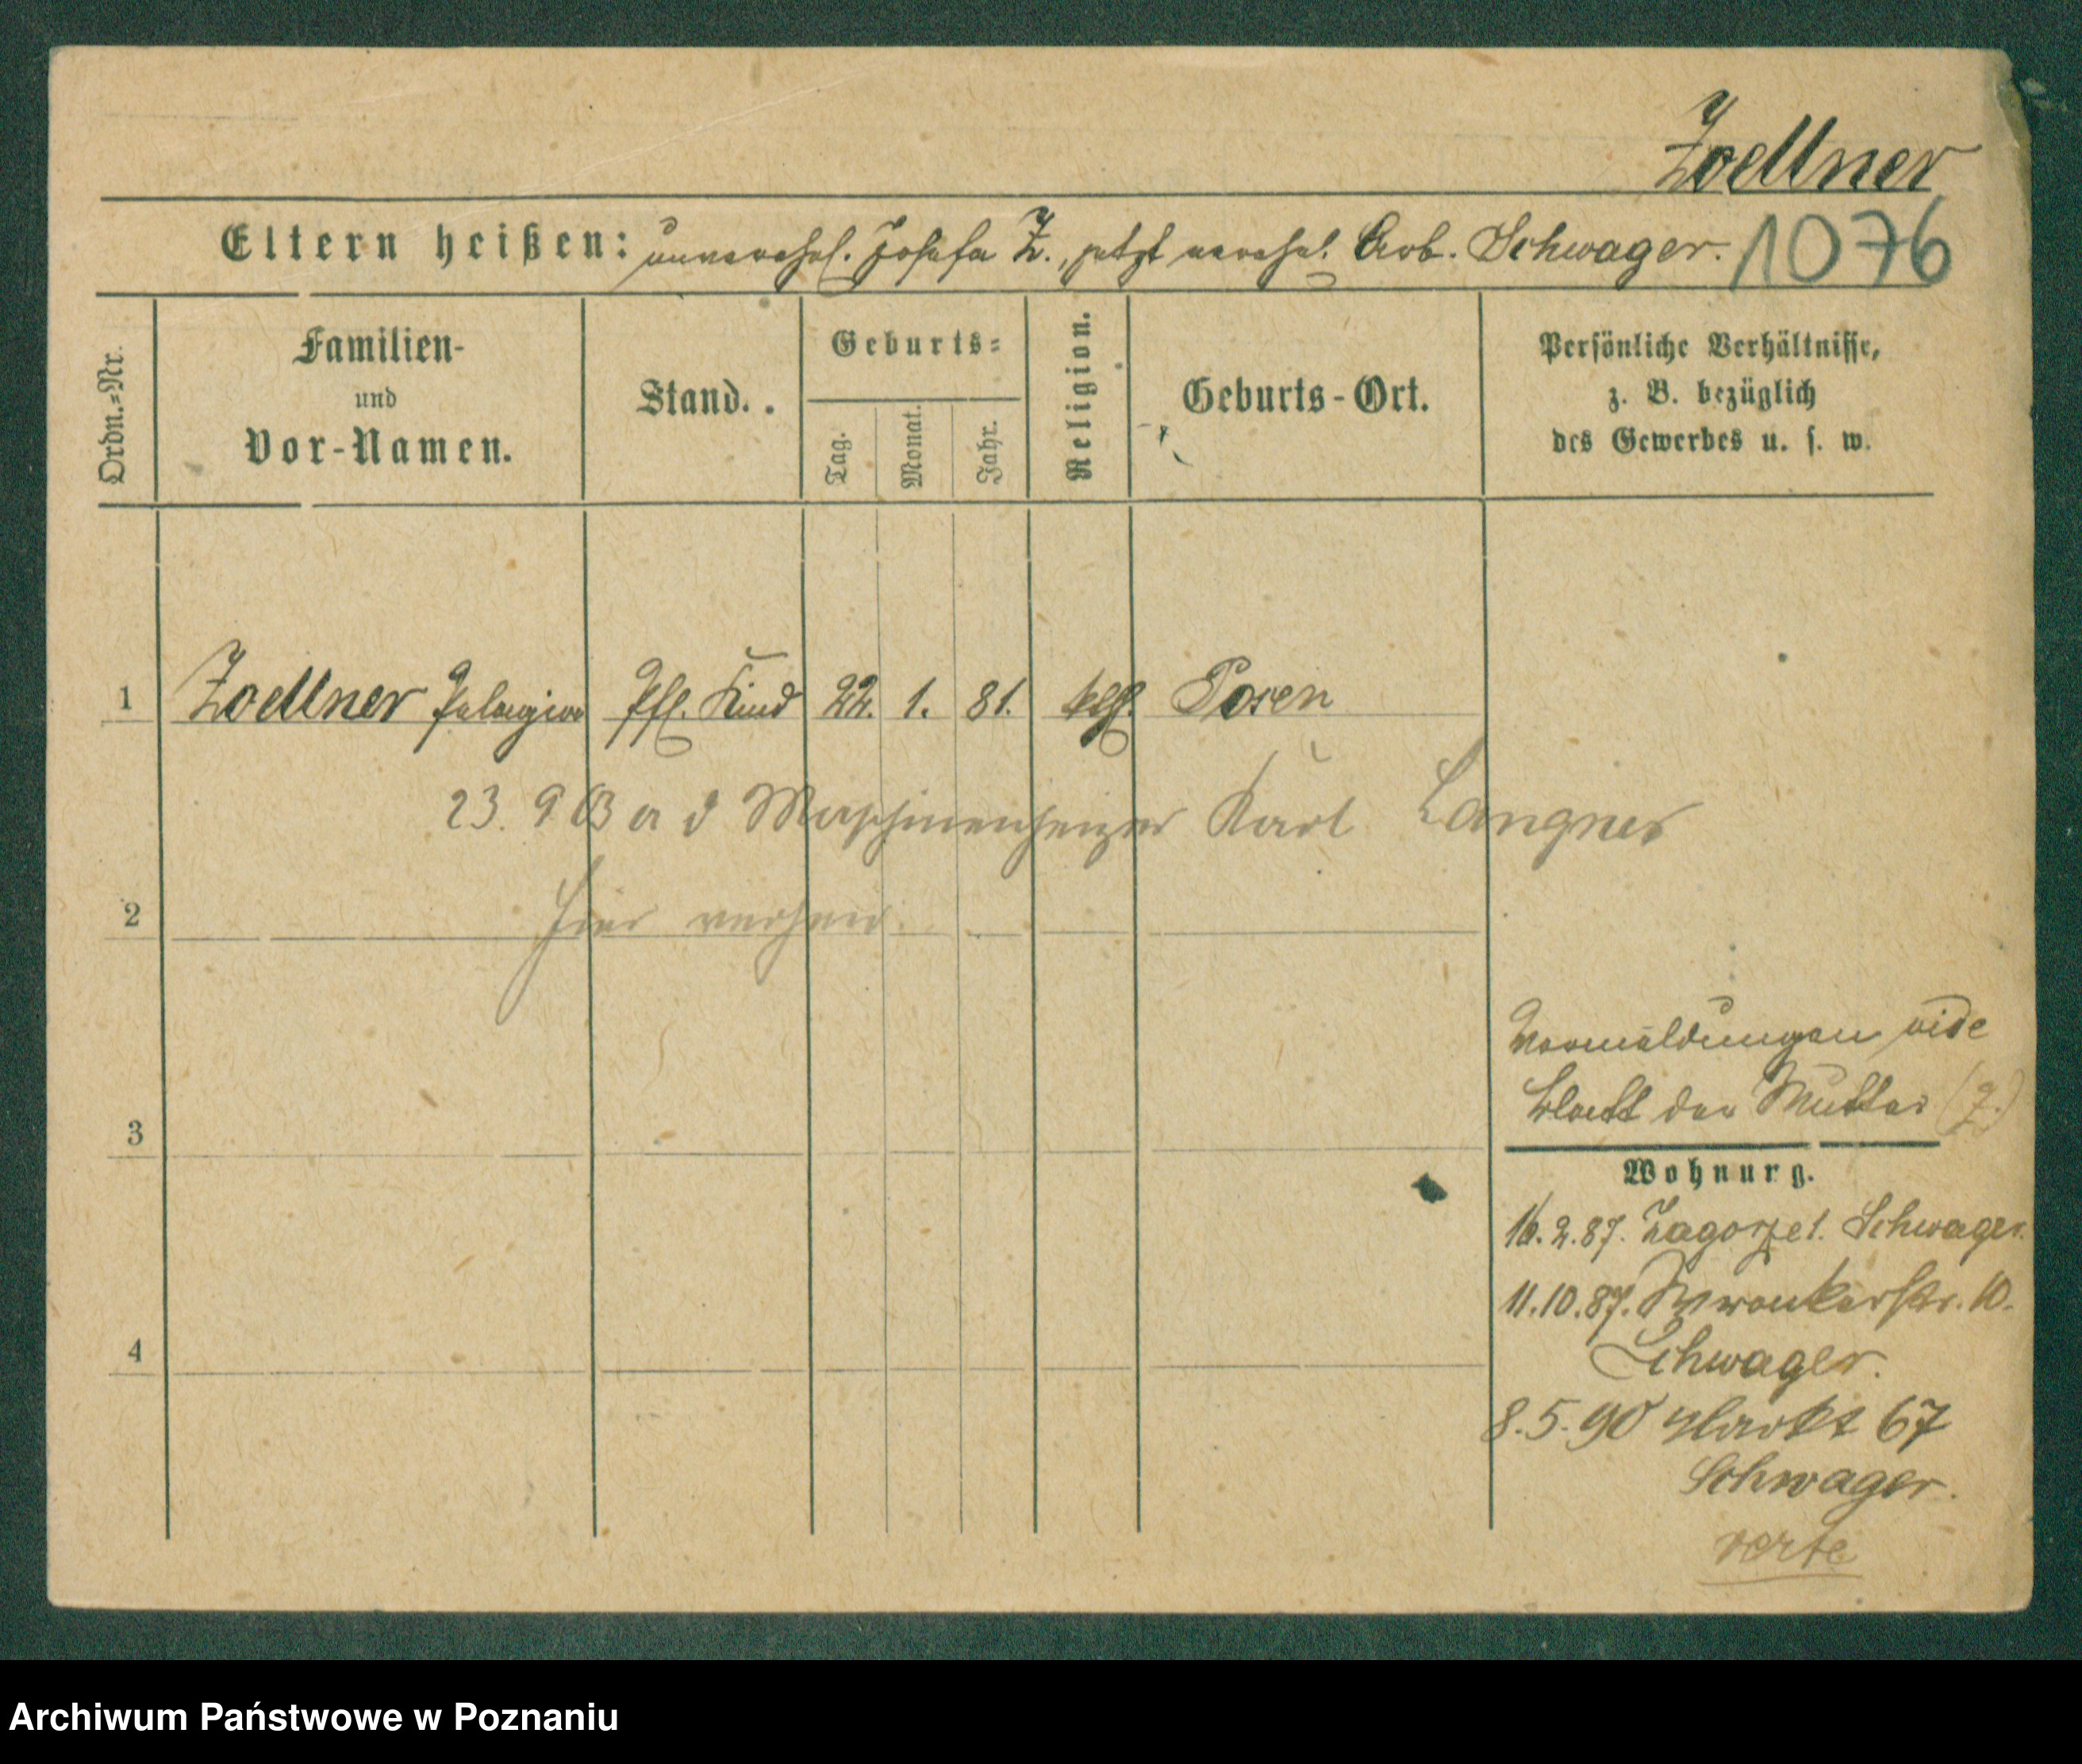 Zoellner
Eltern heißen: unverehel. Josefa Z., jetzt verehel. Arb. Schwager. 1076
Ordn.=Nr.
Familien-
und
Vor-Namen.
Stand.
Geburts=
Tag.
Monat.
Jahr.
Religion.
Geburts-Ort.
Persönliche Verhältnisse,
z. B. bezüglich
des Gewerbes u. s. w.
1 Zoellner Pelagia Pfl. Kind 22. 1. 81. kth. Posen
23. 9 03 a d Maschinenheizer Karl Langner
2 hier verheir.
Vormeldungen vide
Blatt der Mutter (Z.)
3
Wohnurg.
16.2.87. Zagorze 1. Schwager.
11.10.87. Wronkerstr. 10.
4 Schwager.
8.5.90 Markt 67
Schwager.
verte
Archiwum Państwowe w Poznaniu